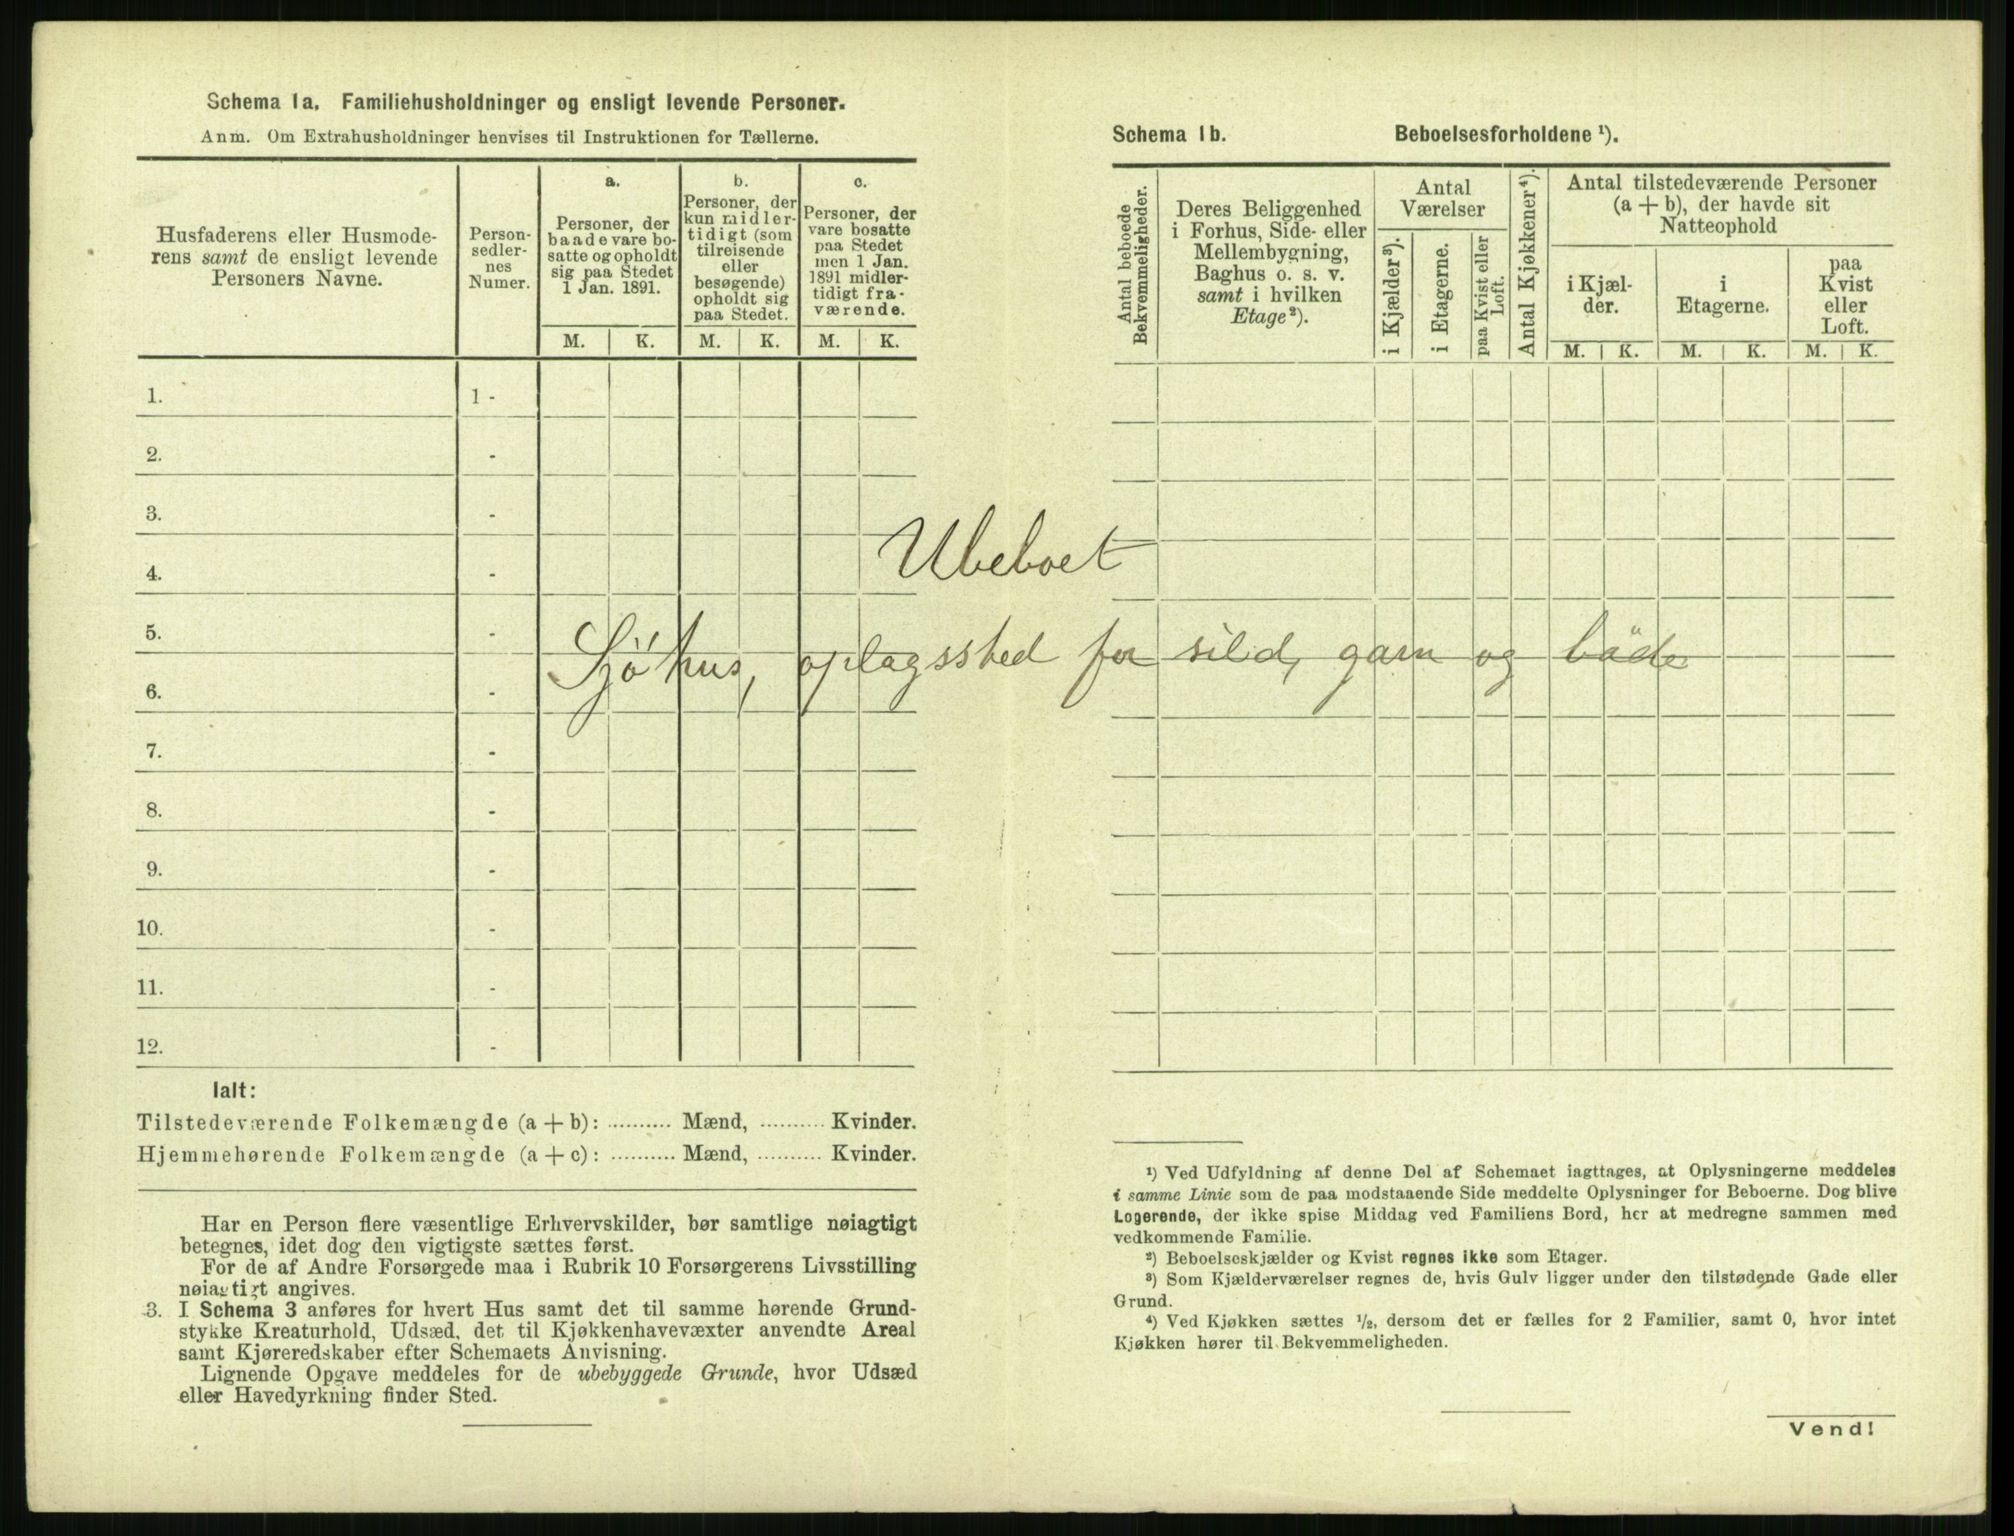 Schema 1a. Familiehusholdninger og ensligt levende Personer.
Anm. Om Extrahusholdninger henvises til Instruktionen for Tællerne.
Husfaderens eller Husmode-
rens samt de ensligt levende
Personers Navne.
Person-
sedler-
nes
Numer.
a.
Personer, der
baade vare bo-
satte og opholdt
sig paa Stedet
1 Jan. 1891.
b.
Personer, der
kun midler-
tidigt (som
tilreisende
eller
besøgende)
opholdt sig
paa Stedet.
c.
Personer, der
vare bosatte
paa Stedet
men 1 Jan.
1891 midler-
tidigt fra-
værende.
M. K. M. K. M. K.
1. 1 -
2. -
3. -
4. -
5. -
6. -
7. -
8. -
9. -
10. -
11. -
12. -
Ubeboet
Sjöhus, oplagssted for sild, garn og både
Ialt:
Tilstedeværende Folkemængde (a + b): .......... Mænd, .......... Kvinder.
Hjemmehørende Folkemængde (a + c): .......... Mænd, .......... Kvinder.
Har en Person flere væsentlige Erhvervskilder, bør samtlige nøiagtigt
betegnes, idet dog den vigtigste sættes først.
For de af Andre Forsørgede maa i Rubrik 10 Forsørgerens Livsstilling
nøiagtigt angives.
3. I Schema 3 anføres for hvert Hus samt det til samme hørende Grund-
stykke Kreaturhold, Udsæd, det til Kjøkkenhavevæxter anvendte Areal
samt Kjøreredskaber efter Schemaets Anvisning.
Lignende Opgave meddeles for de ubebyggede Grunde, hvor Udsæd
eller Havedyrkning finder Sted.
Schema 1b. Beboelsesforholdene ¹).
Antal beboede
Bekvemmeligheder.
Deres Beliggenhed
i Forhus, Side- eller
Mellembygning,
Baghus o. s. v.
samt i hvilken
Etage²).
Antal
Værelser
i Kjælder³).
i Etagerne.
paa Kvist eller
Loft.
Antal Kjøkkener⁴).
Antal tilstedeværende Personer
(a + b), der havde sit
Natteophold
i Kjæl-
der.
i
Etagerne.
paa
Kvist
eller
Loft.
M. K. M. K. M. K.
¹) Ved Udfyldning af denne Del af Schemaet iagttages, at Oplysningerne meddeles
i samme Linie som de paa modstaaende Side meddelte Oplysninger for Beboerne. Dog blive
Logerende, der ikke spise Middag ved Familiens Bord, her at medregne sammen med
vedkommende Familie.
²) Beboelseskjælder og Kvist regnes ikke som Etager.
³) Som Kjælderværelser regnes de, hvis Gulv ligger under den tilstødende Gade eller
Grund.
⁴) Ved Kjøkken sættes ½, dersom det er fælles for 2 Familier, samt 0, hvor intet
Kjøkken hører til Bekvemmeligheden.
Vend!